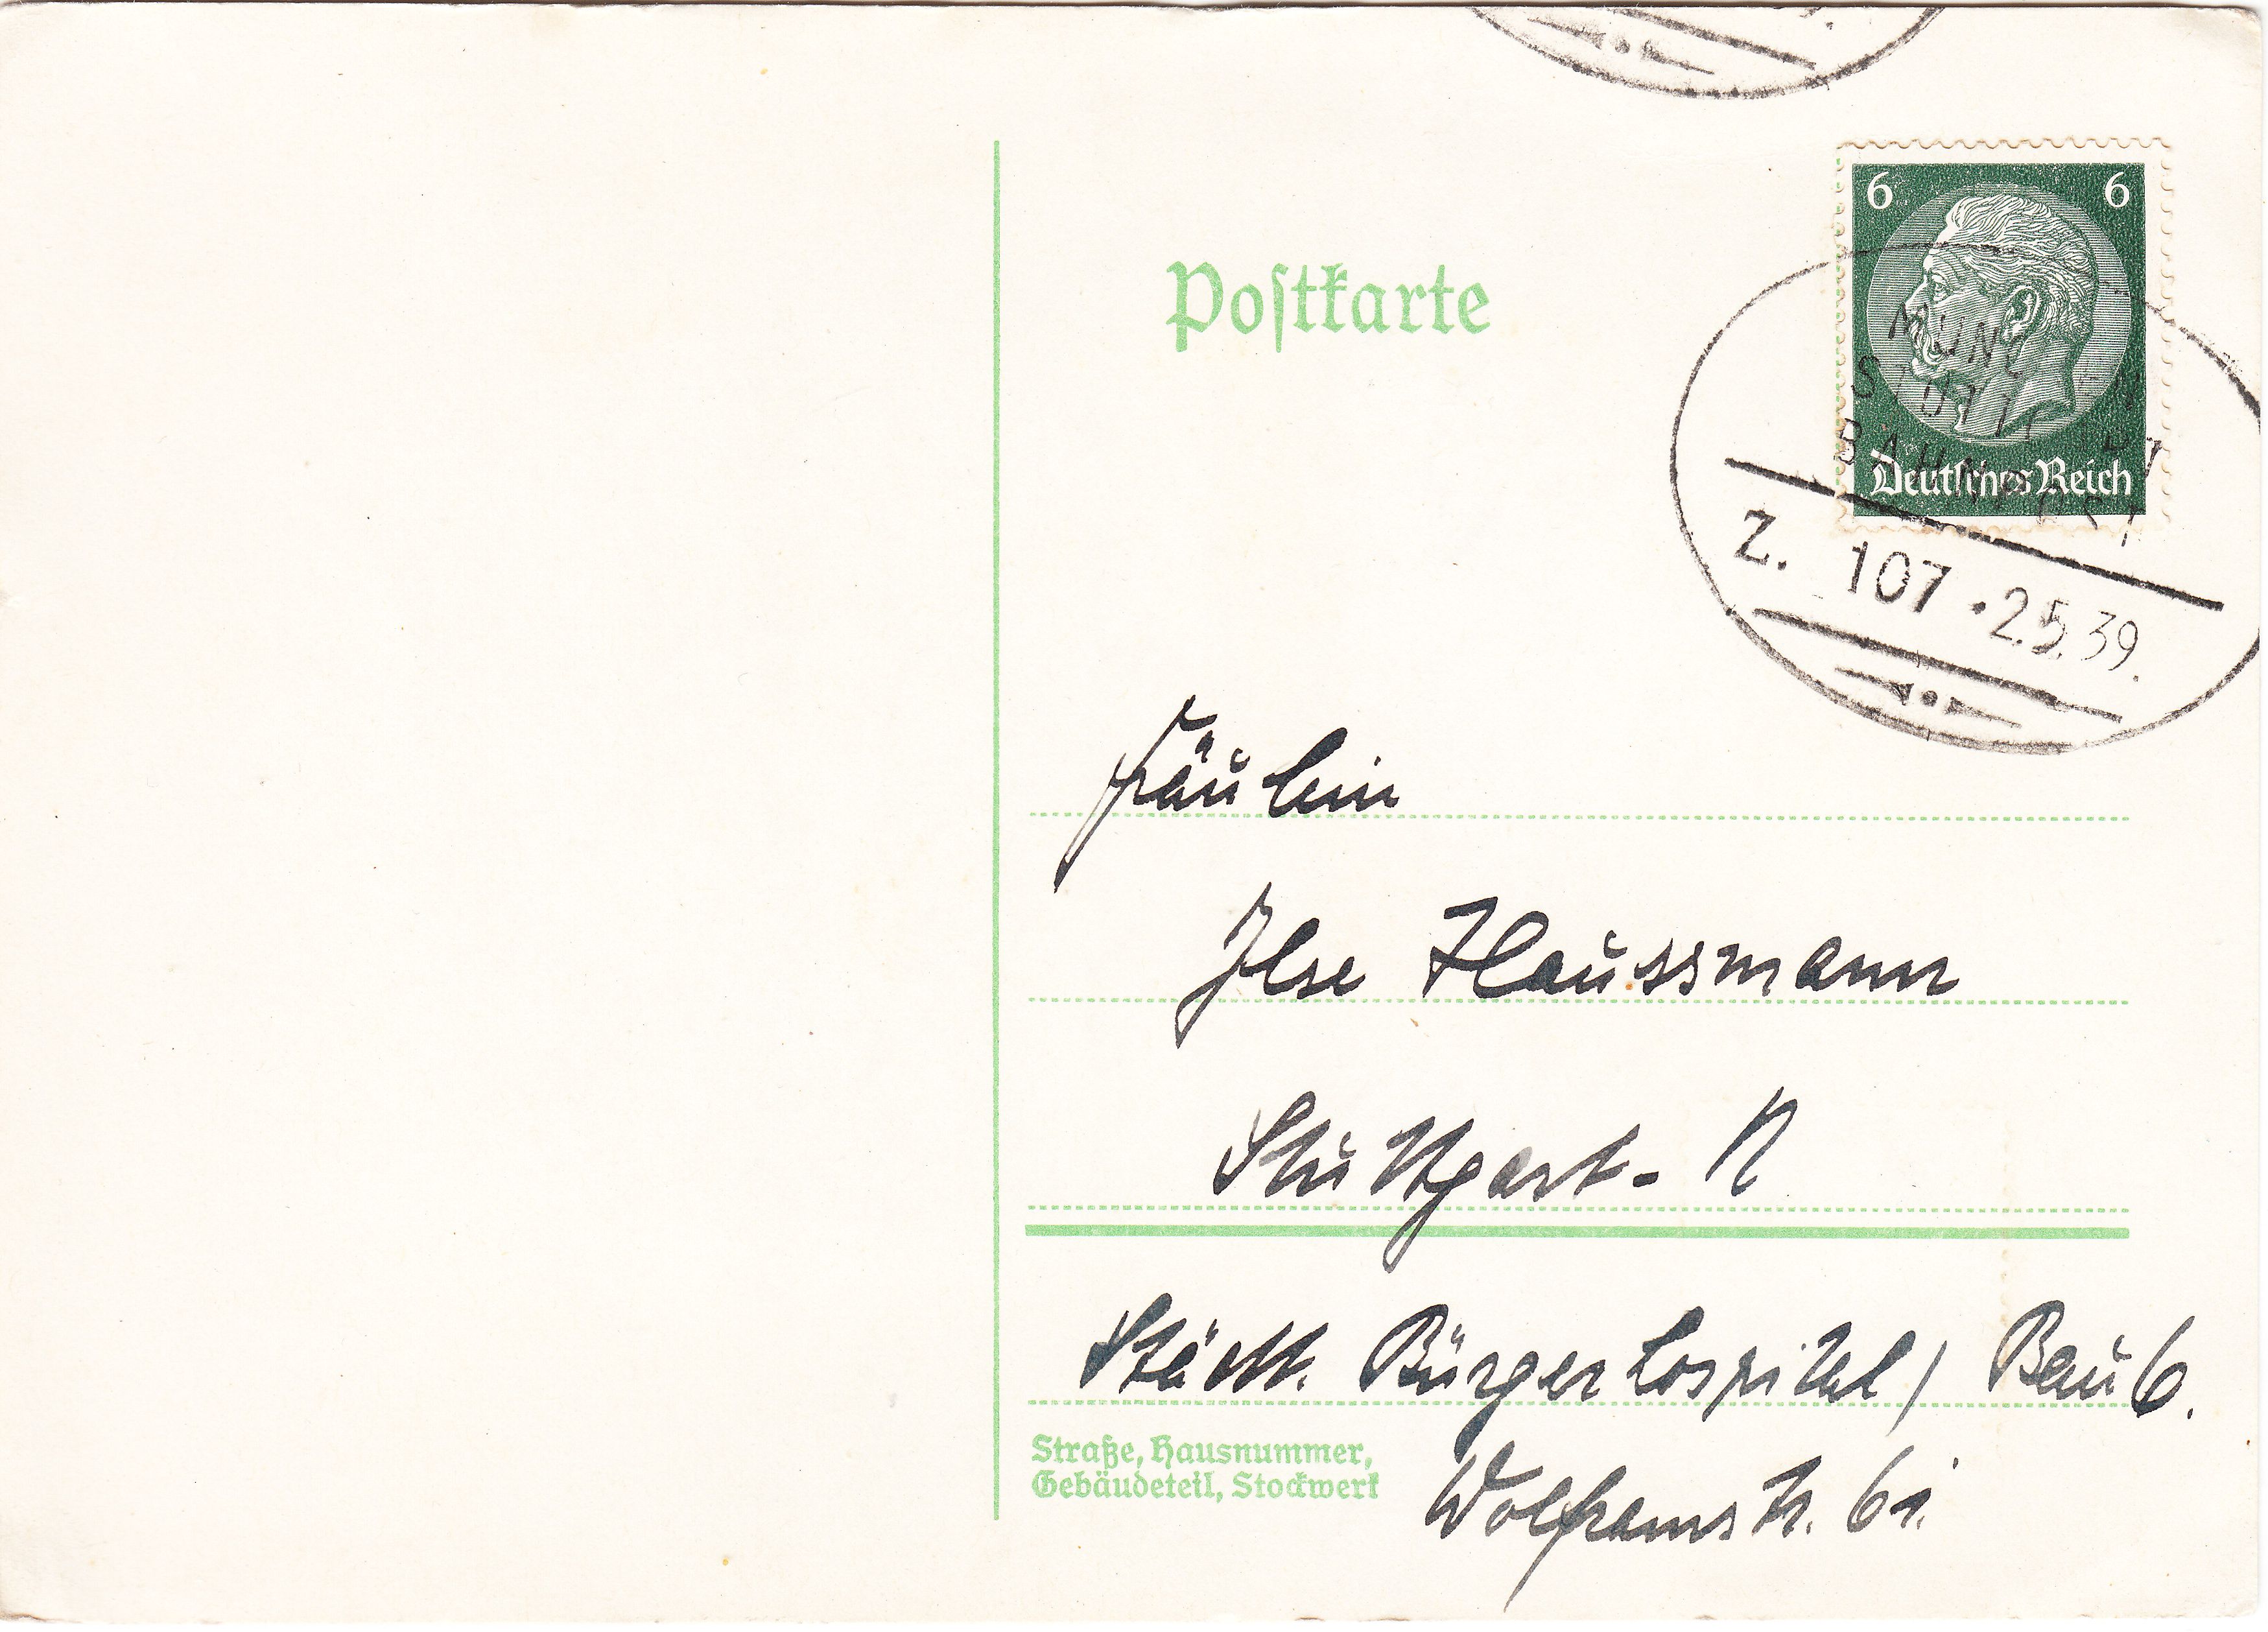 6 6
Deutsches Reich
MÜNCHEN
STUTTGART
BAHNPOST
Z. 107 . 2.5.39.
Postkarte
Fräulein
Ilse Haussmann
Stuttgart - N
Städt. Bürgerhospital / Bau 6.
Straße, Hausnummer,
Gebäudeteil, Stockwerk
Wolframstr. 61.